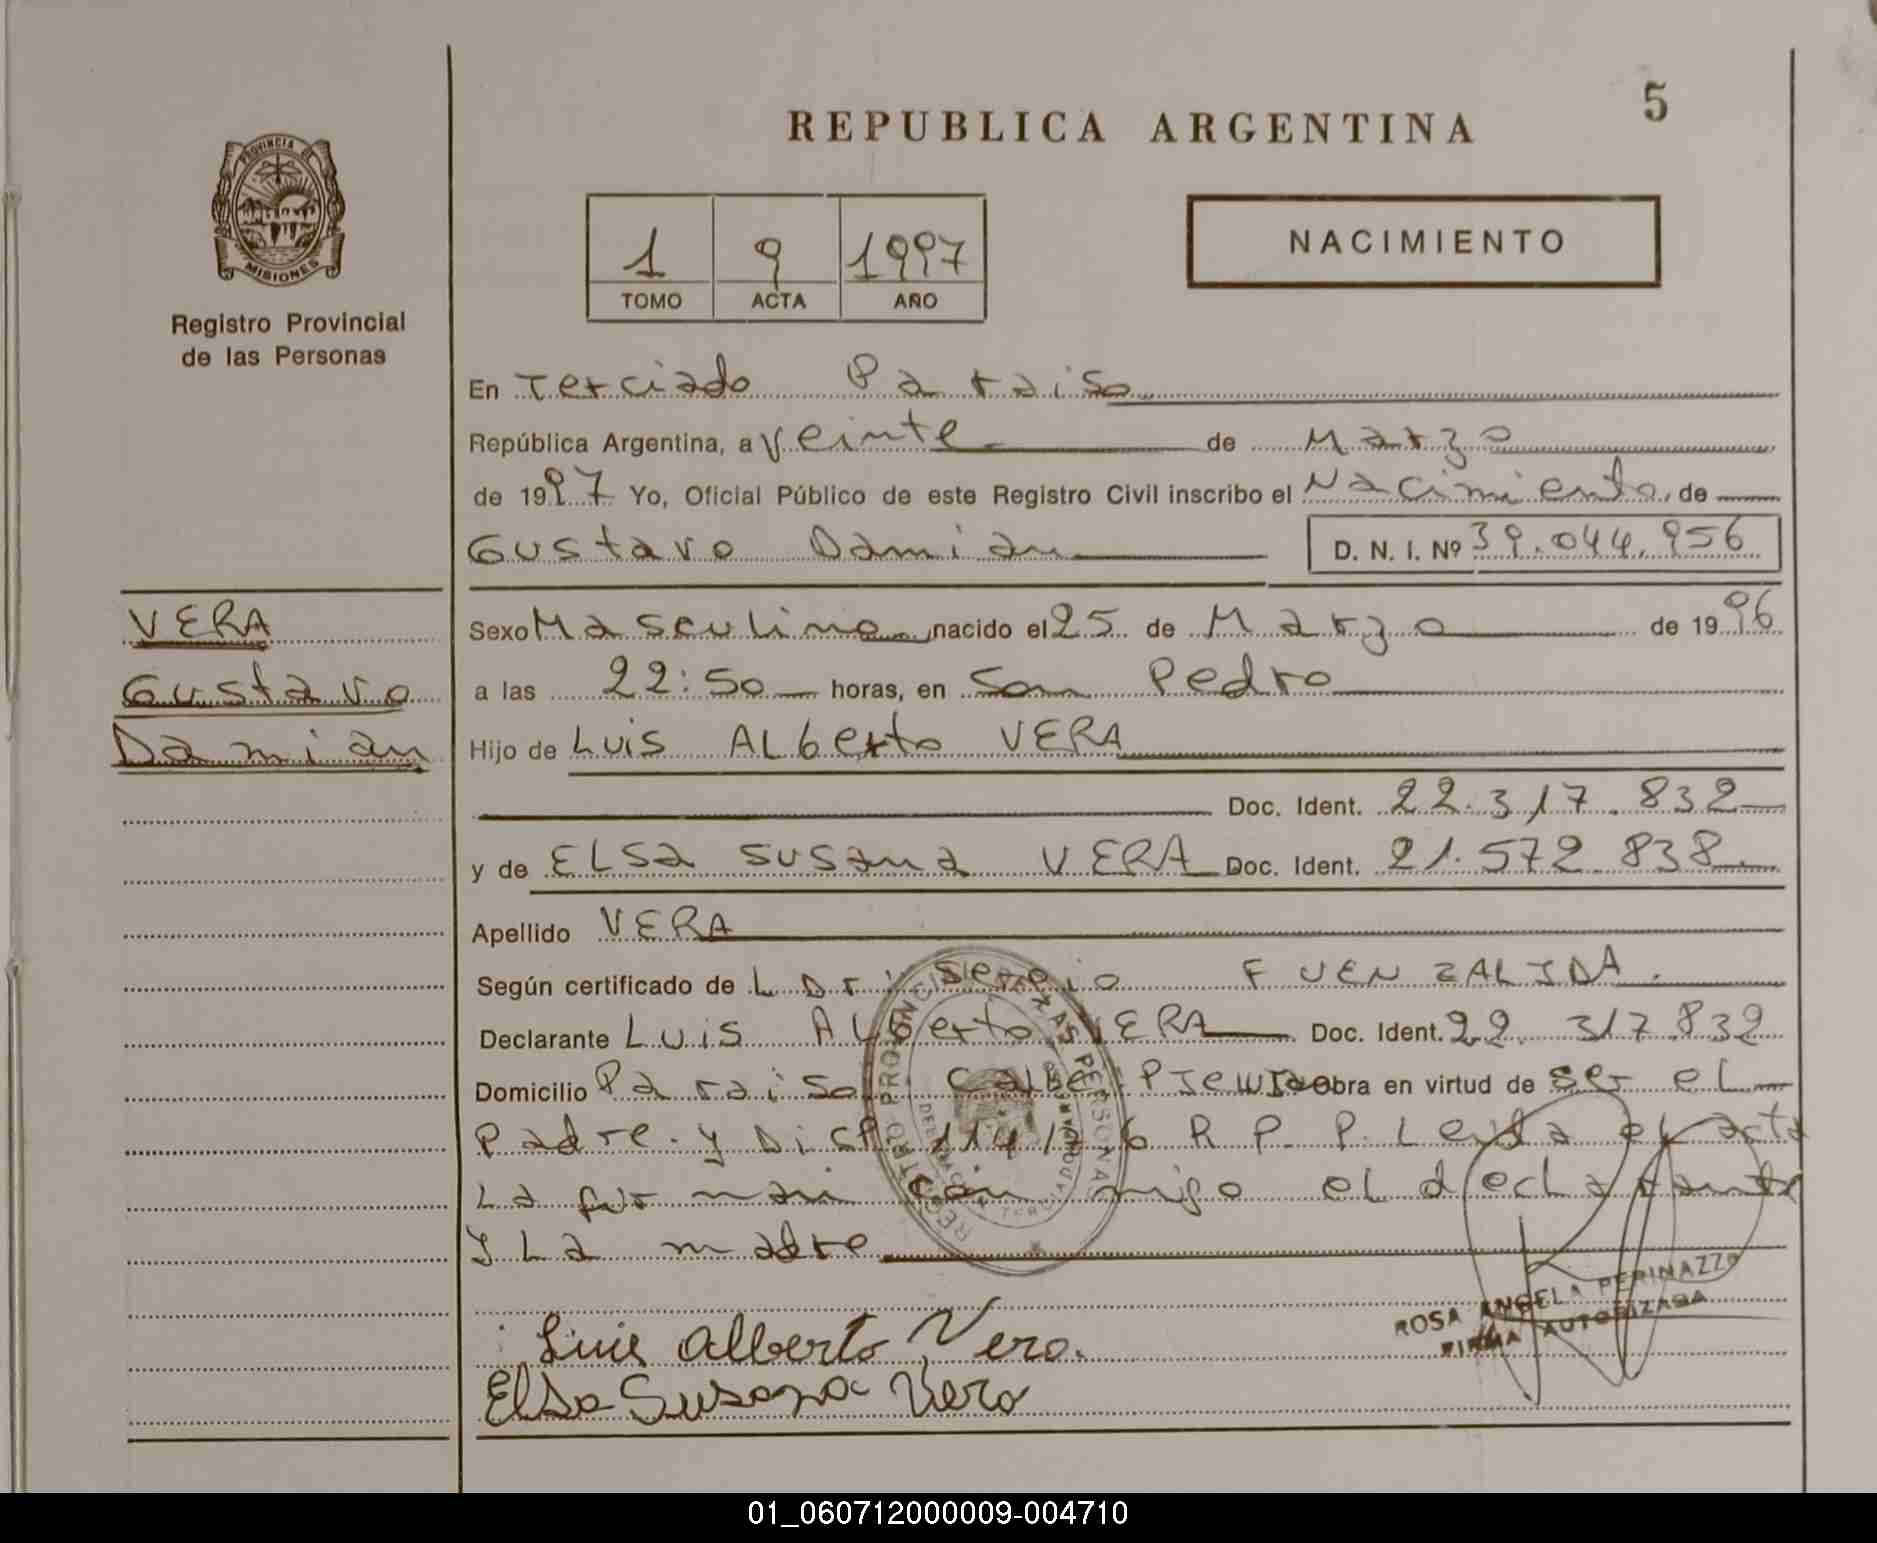 5
REPUBLICA ARGENTINA
PROVINCIA DE
MISIONES
Registro Provincial
de las Personas
1 9 1997
TOMO ACTA AÑO
NACIMIENTO
En Terciado Paraiso
República Argentina, a Veinte de Marzo
de 1997 Yo, Oficial Público de este Registro Civil inscribo el Nacimiento, de
Gustavo Damian D. N. I. Nº 39.044.956
VERA
Gustavo
Damian
Sexo Masculino, nacido el 25 de Marzo de 1996
a las 22:50 horas, en San Pedro
Hijo de Luis ALberto VERA
Doc. Ident. 22.317.832
y de ELSa SUSana VERA Doc. Ident. 21.572 838
Apellido VERA
Según certificado de FUENZALIDA.
Declarante LUIS ALberto VERA Doc. Ident. 22.317.832
Domicilio Paraiso obra en virtud de ser el
Padre. y Disp. 114/76 R.P.P. Leida el acta
La firman conmigo el declarante
y La madre
Luis Alberto Vera.
Elsa Susana Vera
ROSA ANGELA PERINAZZO
FIRMA AUTORIZADA
01_060712000009-004710